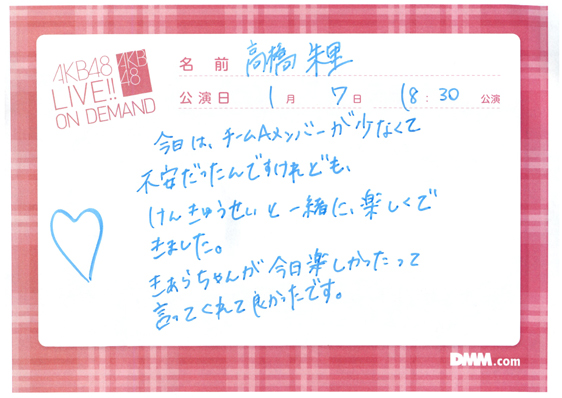 AKB48
LIVE!!
ON DEMAND
AKB
48
名前 高橋 朱里
公演日 1月 7日 18:30 公演
今日は、チームAメンバーが少なくて
不安だったんですけれども、
けんきゅうせいと一緒に、楽しくで
きました。
きあらちゃんが今日楽しかったって
言ってくれて良かったです。
DMM.com